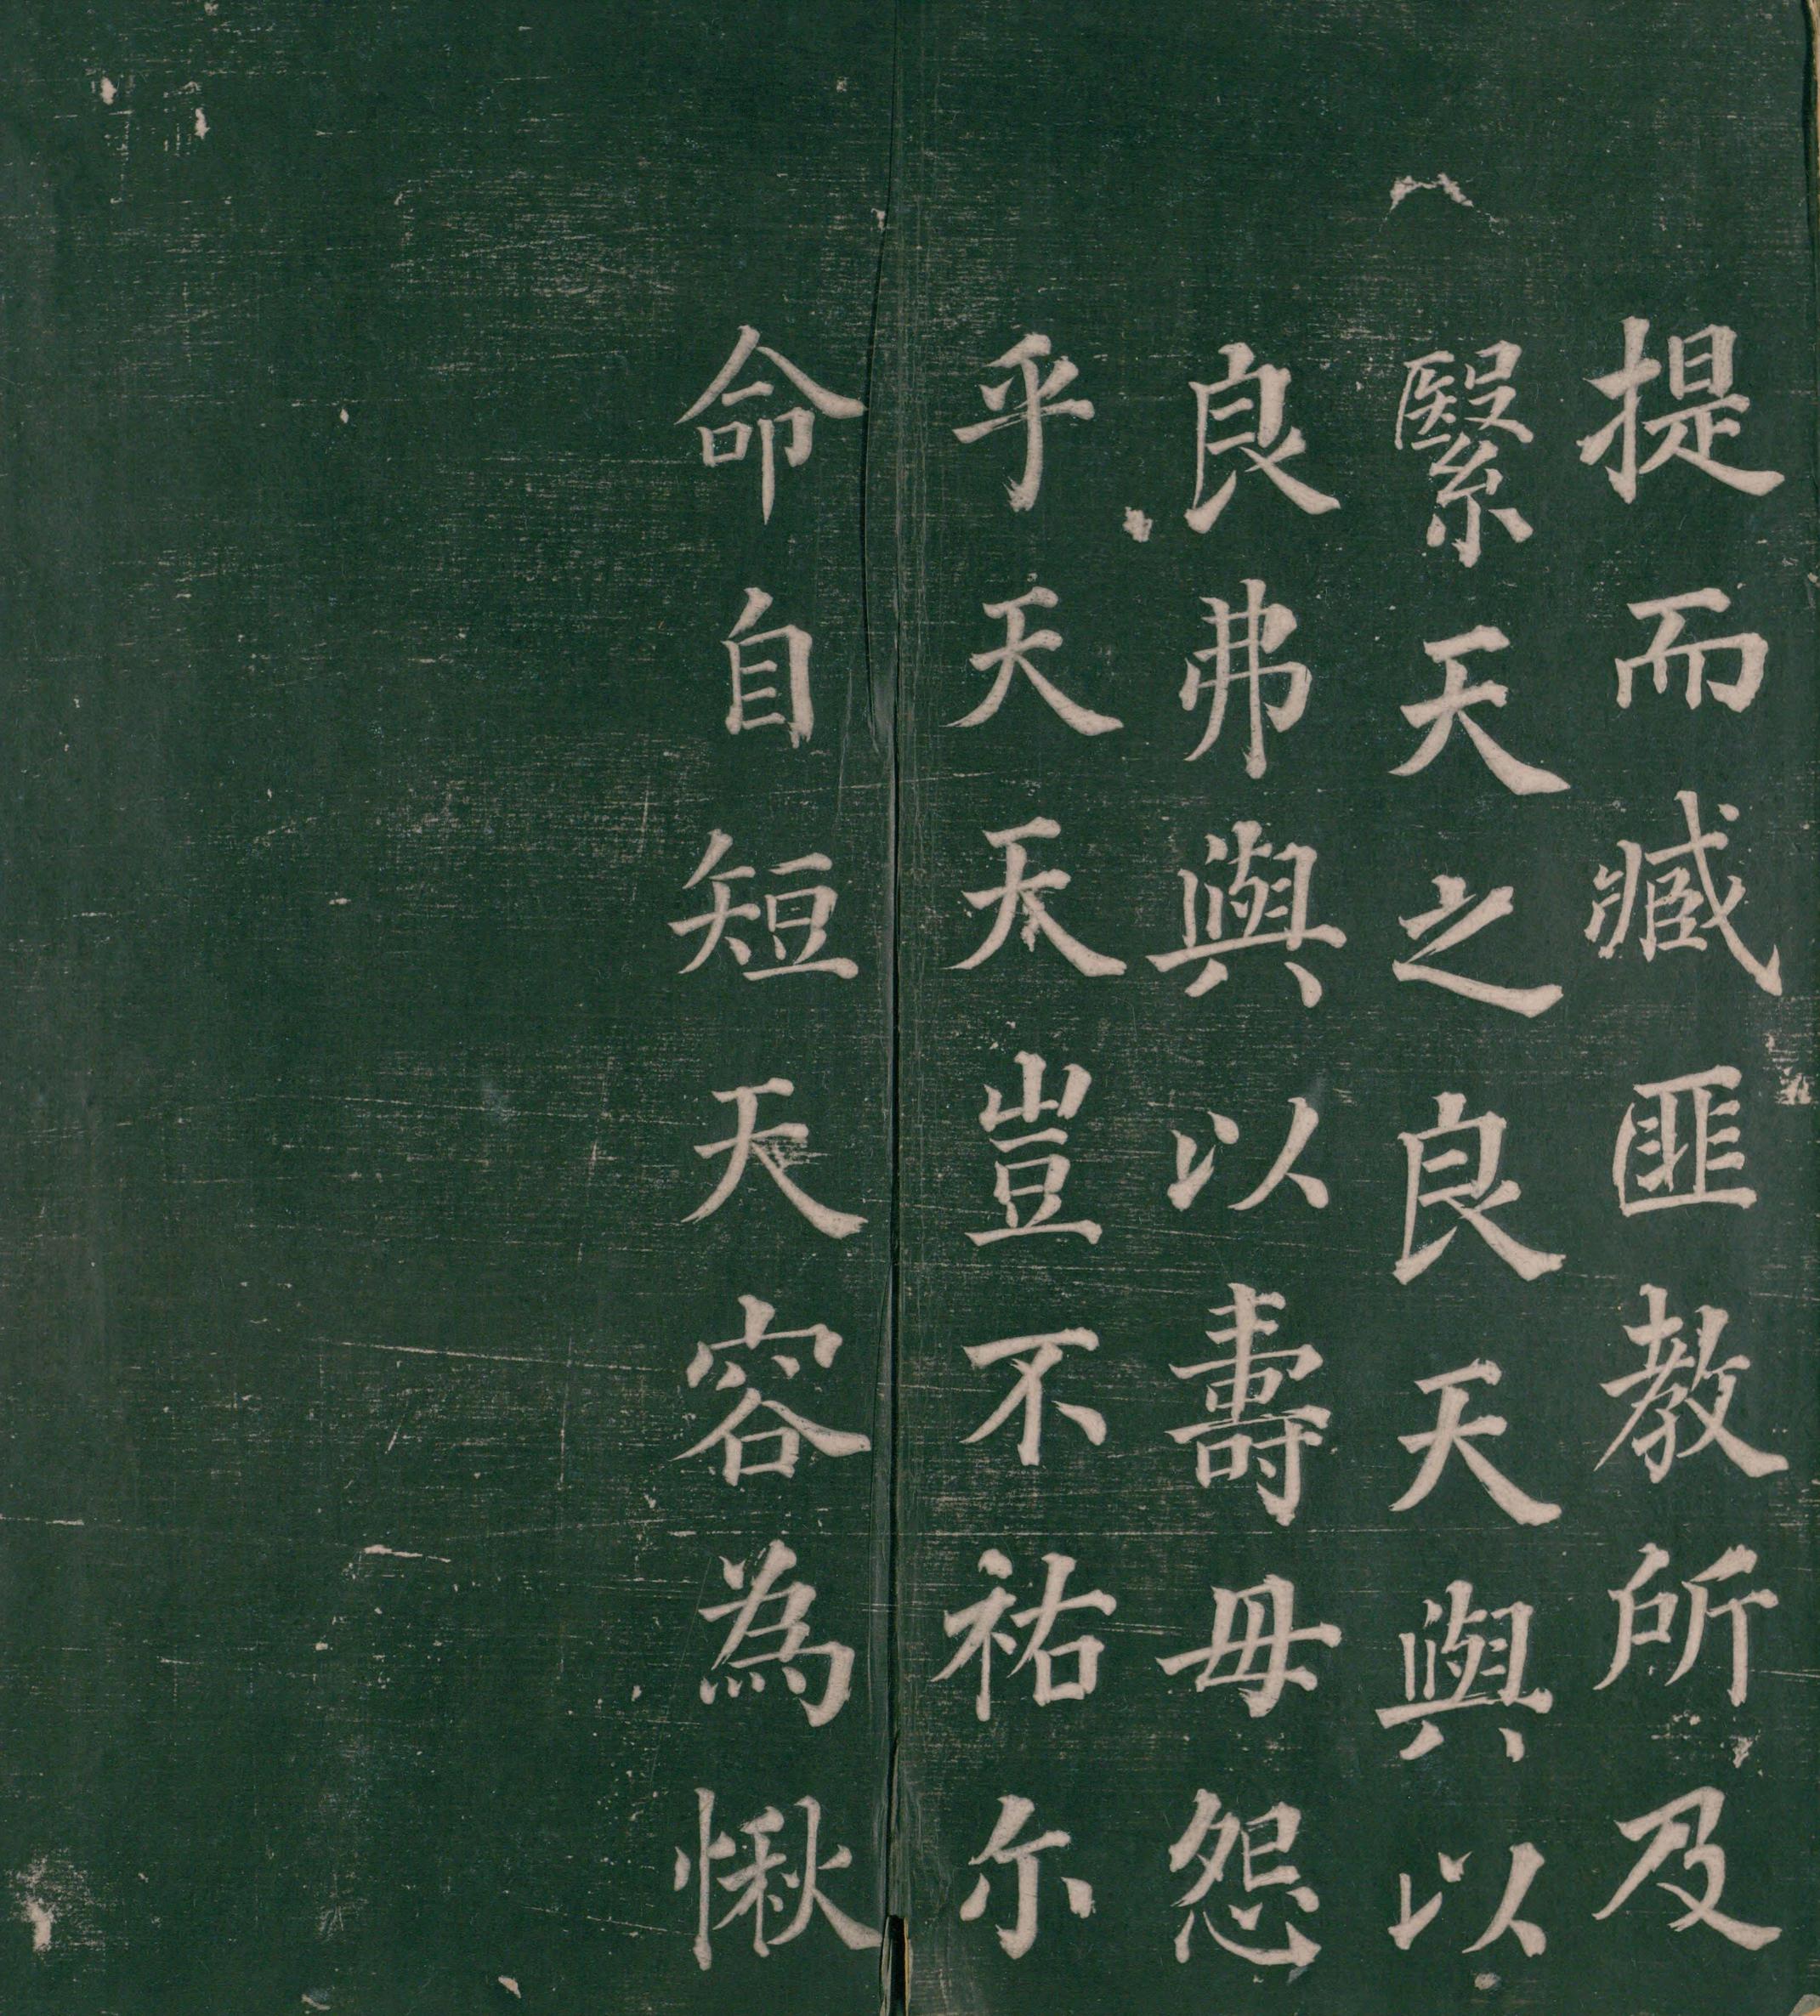 提而臧匪教所及
繄天之良天與以
良弗與以壽毋怨
乎天天豈不祐尓
命自短天容為愀